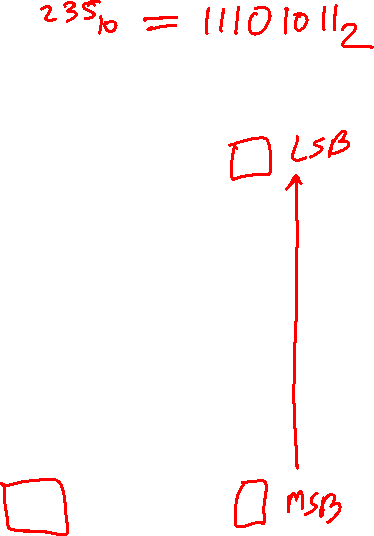 235₁₀ = 11101011₂
LSB
MSB